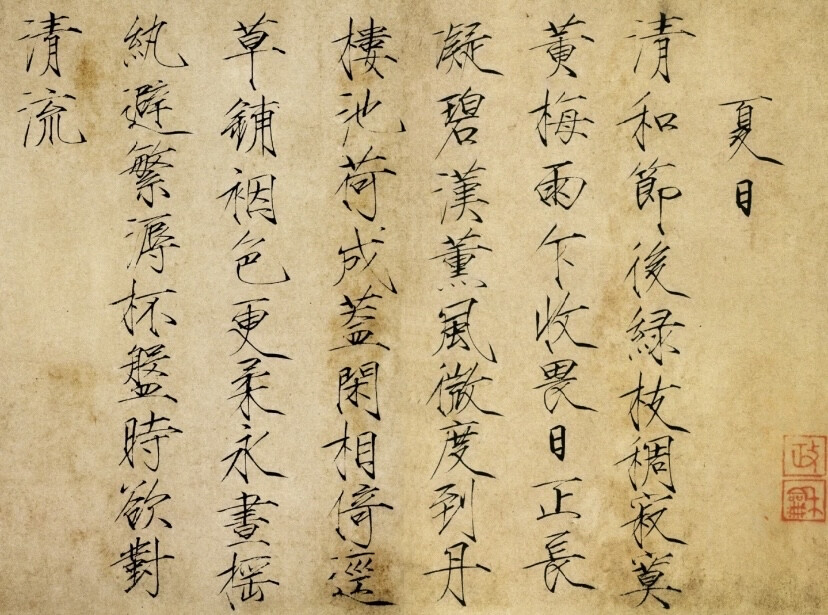 夏日
清和節後緑枝稠寂莫
黃梅雨乍收畏日正長
凝碧漢薰風微度到丹
樓池荷成蓋閑相倚逕
草鋪裀色更柔永晝搖
紈避繁溽杯盤時欲對
清流
政龢